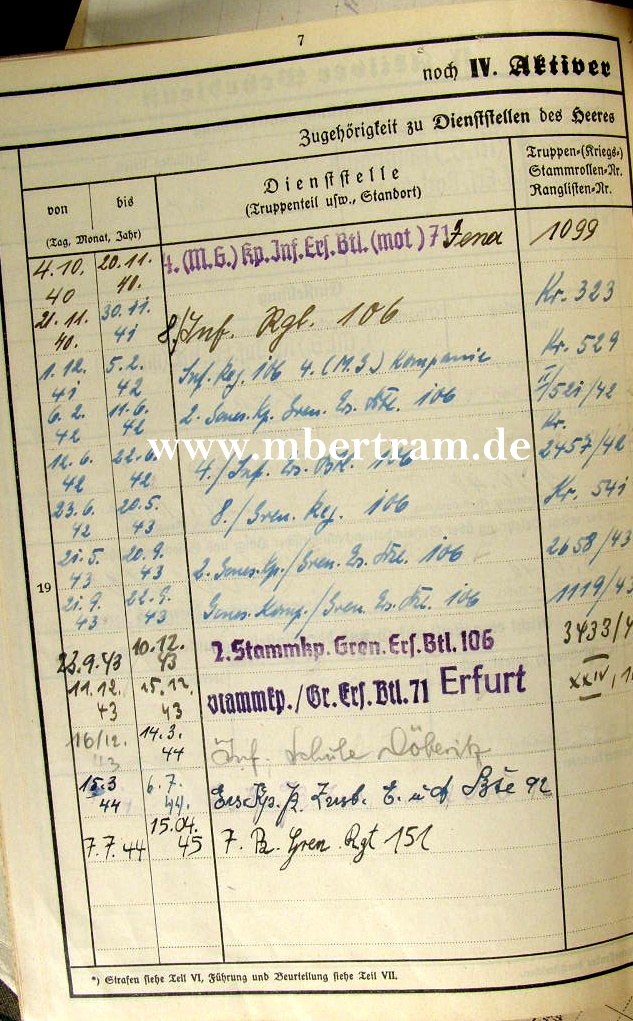 7
noch IV. Aktiver
Zugehörigkeit zu Dienststellen des Heeres
von
bis
(Tag, Monat, Jahr)
Dienststelle
(Truppenteil usw., Standort)
Truppen-(Kriegs-)
Stammrollen-Nr.
Ranglisten-Nr.
4.10. 40 20.11. 40. 4. (M.G.) Kp. Inf. Ers. Btl. (mot) 71 Jena 1099
21.11. 40. 30.11. 41 8./Inf. Rgt. 106 Kr. 323
1.12. 41 5.2. 42 Inf. Reg. 106 4. (M.G.) Kompanie Kr. 529
6.2. 42 11.6. 42 2. Genes. Kp. Gren. Ers. Btl. 106 II/521/42
www.mbertram.de
12.6. 42 22.6. 42 4./Inf. Ers. Btl. 106 Kr. 2457/42
23.6. 42 20.5. 43 8./Gren. Reg. 106 Kr. 541
19
21.5. 43 20.9. 43 2. Genes. Kp./Gren. Ers. Btl. 106 2658/43
21.9. 43 22.9. 43 Genes. Komp./Gren. Ers. Btl. 106 1119/43
23.9.43 10.12. 43 2. Stammkp. Gren. Ers. Btl. 106 3433/4
11.12. 43 15.12. 43 Stammkp./Gr. Ers. Btl. 71 Erfurt XXIV, 1
16/12. 43 14.3. 44 Inf. Schule Döberitz
15.3 44 6.7. 44. E. u. 92
7.7.44 15.04. 45 7. Pz. Gren. Rgt 151
*) Strafen siehe Teil VI, Führung und Beurteilung siehe Teil VII.